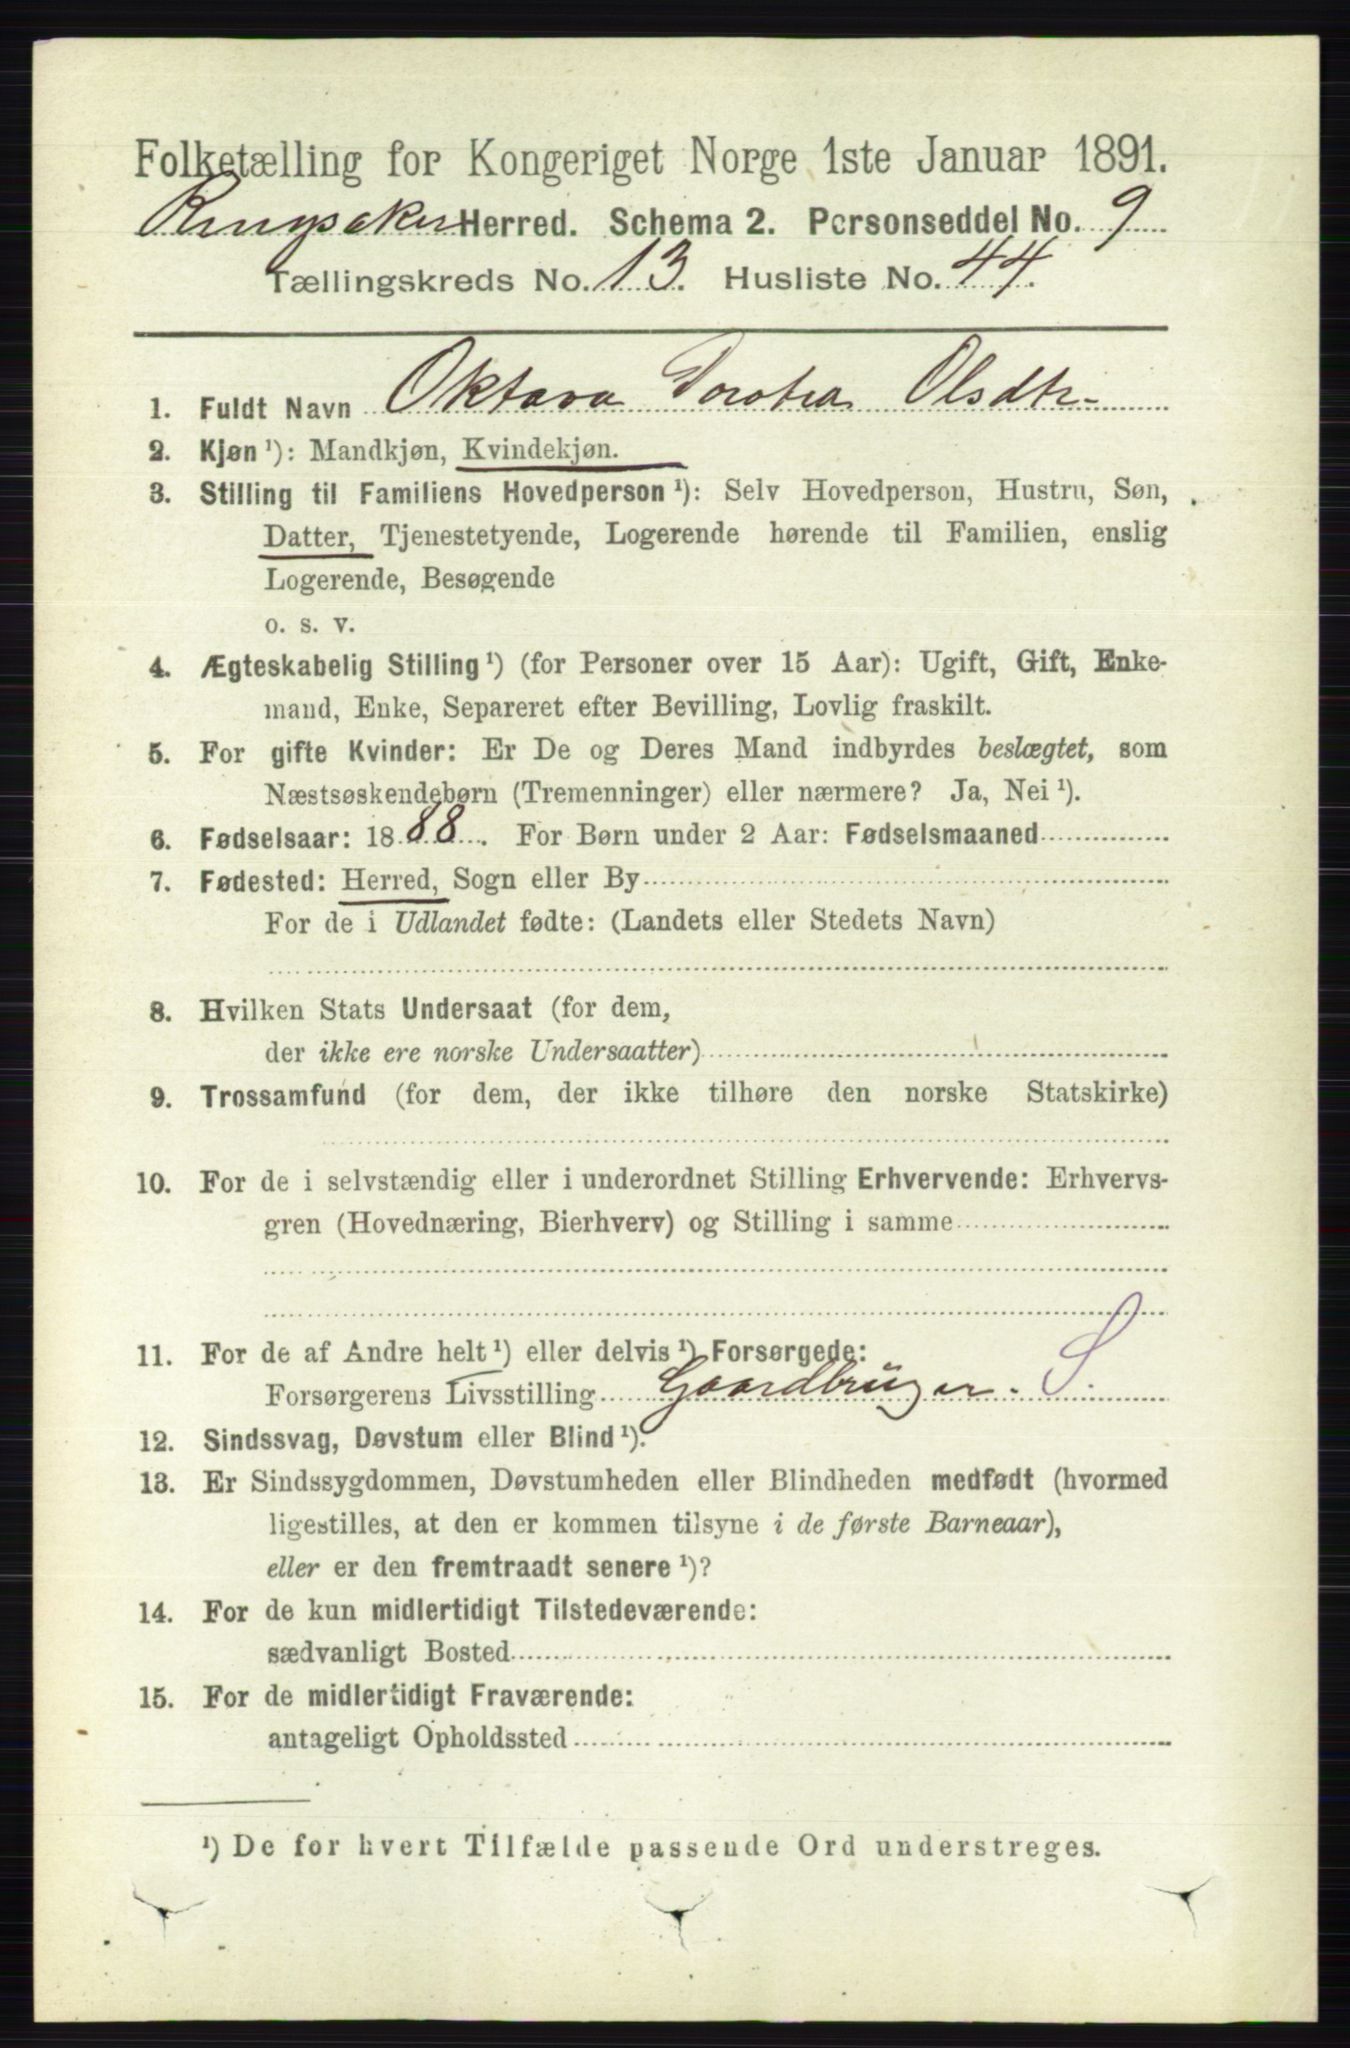 Folketælling for Kongeriget Norge 1ste Januar 1891.
Ringsaker Herred. Schema 2. Personseddel No. 9
Tællingskreds No. 13. Husliste No. 44.
1. Fuldt Navn Oktava Dorothea Olsdtr.
2. Kjøn ¹): Mandkjøn, Kvindekjøn.
3. Stilling til Familiens Hovedperson ¹): Selv Hovedperson, Hustru, Søn,
Datter, Tjenestetyende, Logerende hørende til Familien, enslig
Logerende, Besøgende
o. s. v.
4. Ægteskabelig Stilling ¹) (for Personer over 15 Aar): Ugift, Gift, Enke-
mand, Enke, Separeret efter Bevilling, Lovlig fraskilt.
5. For gifte Kvinder: Er De og Deres Mand indbyrdes beslægtet, som
Næstsøskendebørn (Tremenninger) eller nærmere? Ja, Nei ¹).
6. Fødselsaar: 1888. For Børn under 2 Aar: Fødselsmaaned
7. Fødested: Herred, Sogn eller By
For de i Udlandet fødte: (Landets eller Stedets Navn)
8. Hvilken Stats Undersaat (for dem,
der ikke ere norske Undersaatter)
9. Trossamfund (for dem, der ikke tilhøre den norske Statskirke)
10. For de i selvstændig eller i underordnet Stilling Erhvervende: Erhvervs-
gren (Hovednæring, Bierhverv) og Stilling i samme
11. For de af Andre helt ¹) eller delvis ¹) Forsørgede:
Forsørgerens Livsstilling Gaardbruger. S.
12. Sindssvag, Døvstum eller Blind ¹).
13. Er Sindssygdommen, Døvstumheden eller Blindheden medfødt (hvormed
ligestilles, at den er kommen tilsyne i de første Barneaar),
eller er den fremtraadt senere ¹)?
14. For de kun midlertidigt Tilstedeværende:
sædvanligt Bosted
15. For de midlertidigt Fraværende:
antageligt Opholdssted
¹) De for hvert Tilfælde passende Ord understreges.